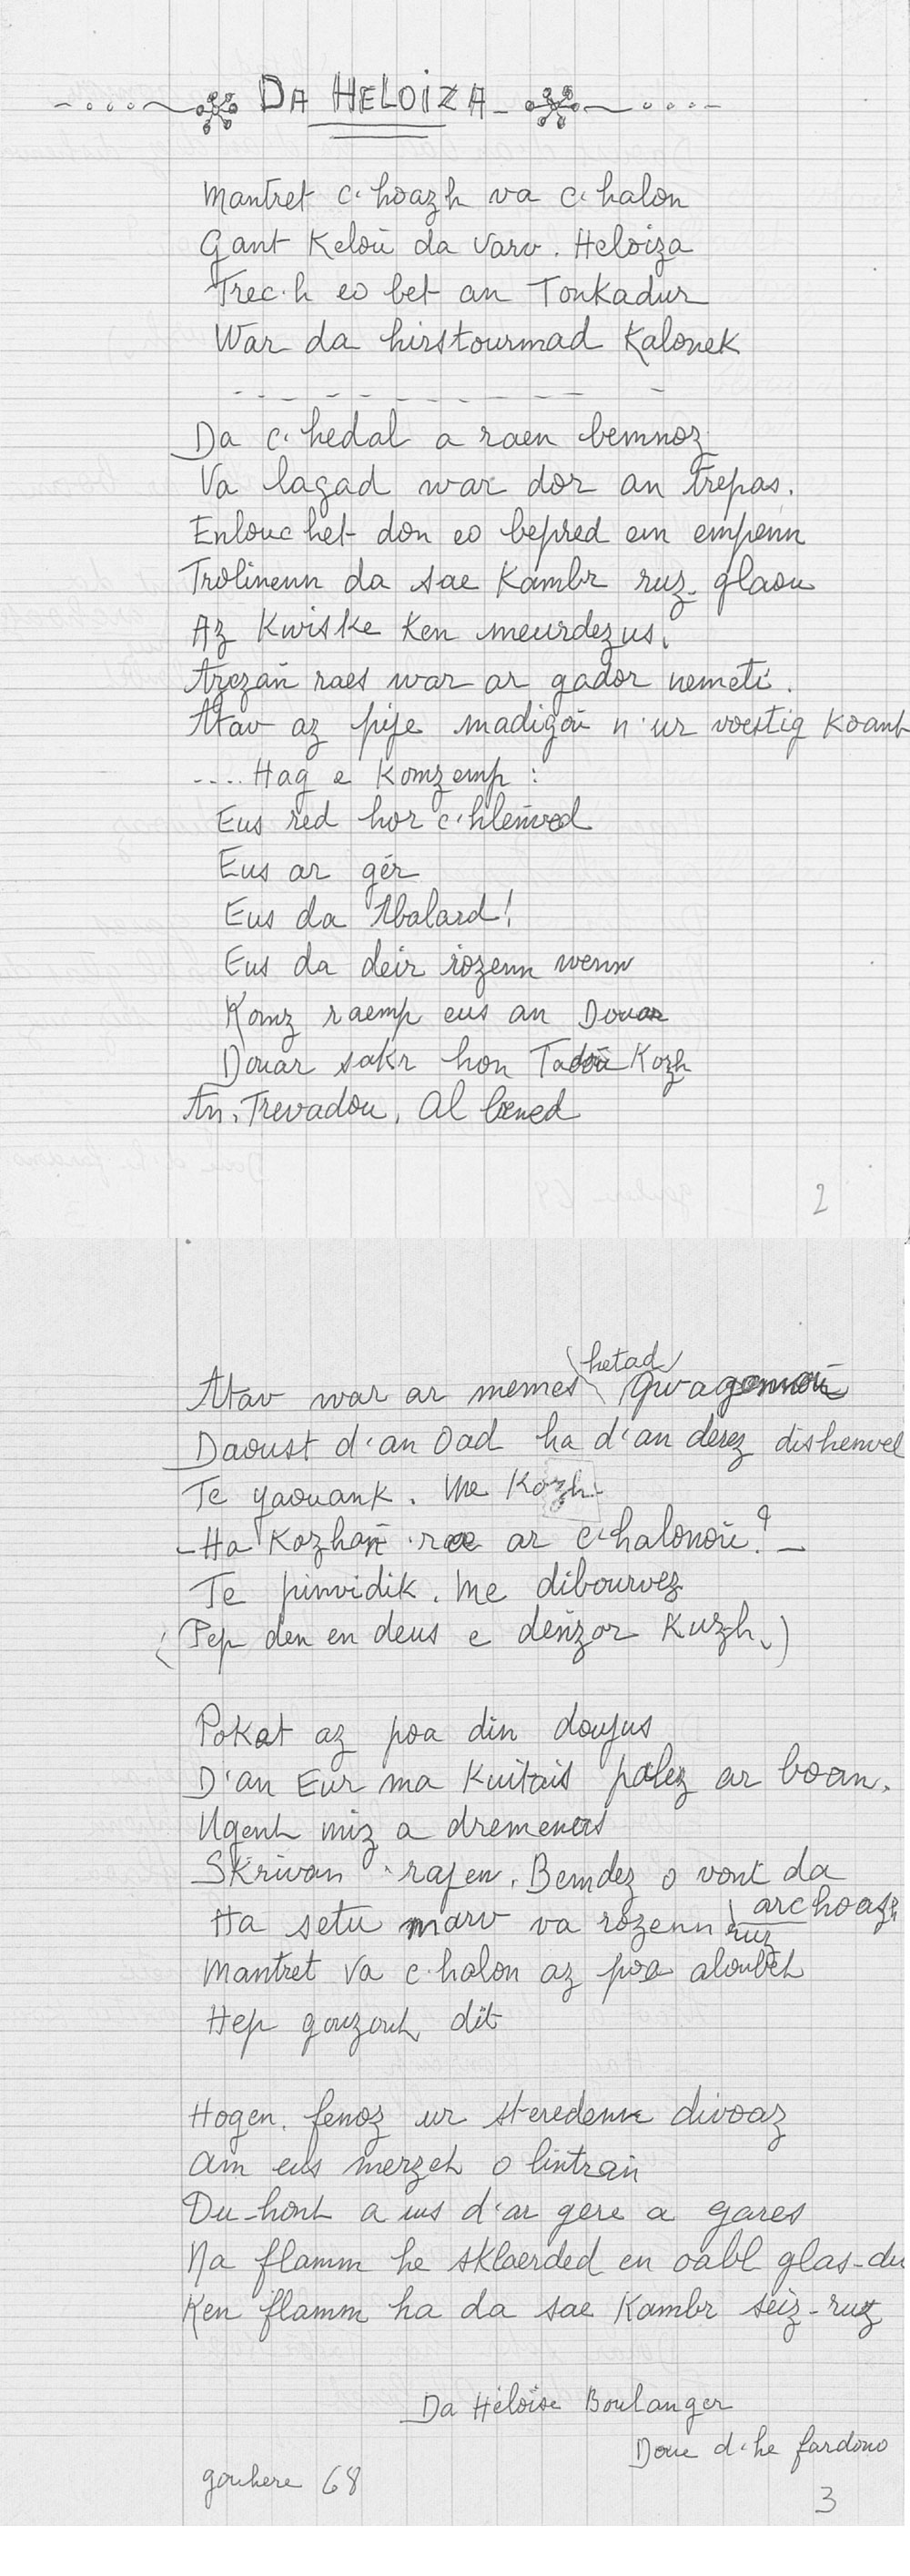 DA HELOIZA
Mantret c'hoazh va c'halon
Gant Keloù da varv. Heloiza
Trec'h eo bet an Tonkadur
War da hirstourmad Kalonek
Da c'hedal a raen bemnoz
Va lagad war dor an trepas.
Enlouc'het don eo bepred em empenn
Trolinenn da sae Kambr ruz-glaou
Az Kwiske Ken meurdezus.
Azezañ raes war ar gador nemeti.
Atav az pije madigoù n'ur voestig Koant
.... Hag e Komzemp :
Eus red hor c'hleñved
Eus ar gêr
Eus da Abalard!
Eus da deir rozenn wenn
Komz raemp eus an Douar
Douar sakr hon Tadoù Kozh
An. Trevadou. Al bened
2
Atav war ar memes hetad gwagennoù
Daoust d'an Oad ha d'an derez dishenvel
Te yaouank. Me Kozh.
-Ha Kozhañ rae ar c'halonoù? -
Te pinvidik. Me dibourvez
(Pep den en deus e deñzor Kuzh.)
Pokat az poa din doujus
D'an Eur ma Kuitais palez ar boan.
Ugent miz a dremenas
Skrivan rajen. Bemdez o vont da
Ha setu marv va rozenn ruz arc'hoazh
Mantret va c'halon az poa aloubet
Hep gouzout dit
Hogen. fenoz ur steredenn divoaz
Am eus merzet o lintrañ
Du-hont a us d'ar gere a gares
Na flamm he sklaerded en oabl glas-du
Ken flamm ha da sae Kambr seiz-ruz
Da Héloïse Boulanger
Doue d'he fardono
gouhere 68
3